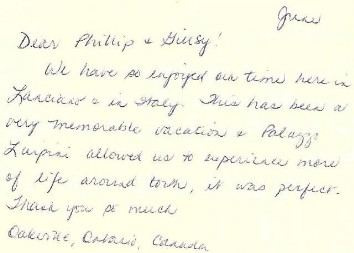 June
Dear Phillip & Giusy!
We have so enjoyed our time here in
Lanciano & in Italy. This has been a
very memorable vacation & Palazzo
Lupini allowed us to experience more
of life around town, it was perfect.
Thank you so much
Oakville, Ontario, Canada